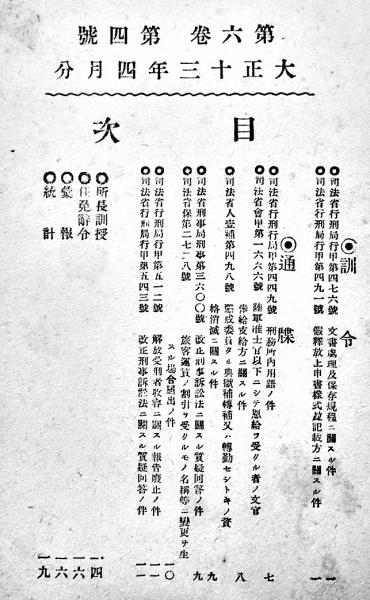 第六卷 第四號
大正十三年四月分
目次
◉訓令
●司法省行刑局行甲第四七六號 文書處理及保存規程ニ關スル件 一
●司法省行刑局行甲第四九一號 假釋放上申書樣式竝記載方ニ關スル件 一
◉通牒
●司法省行刑局行甲第四四九號 刑務所內用語ノ件 七
●司法省會甲第一六六六號 陸軍准士官以下ニシテ恩給ヲ受クル者ノ文官
俸給支給方ニ關スル件 八
●司法省人壹補第四九八號 懲戒委員タル典獄補轉補又ハ轉勤セシトキノ資
格消滅ニ關スル件 九
●司法省刑事局刑事第三六〇〇號 改正刑事訴訟法ニ關スル質疑回答ノ件 九
●司法省保第二七二八號 旅客運賃ノ割引ヲ受クルモノ名稱等ニ變更ヲ生
スル場合屆出ノ件 一〇
●司法省行刑局行甲第五一二號 解放受刑者收容ニ關スル報告廢止ノ件 一一
●司法省行刑局行甲第五四三號 改正刑事訴訟法ニ關スル質疑回答ノ件 一一
●所長訓授 一四
●任免辭令 一六
●彙報 一六
●統計 一九